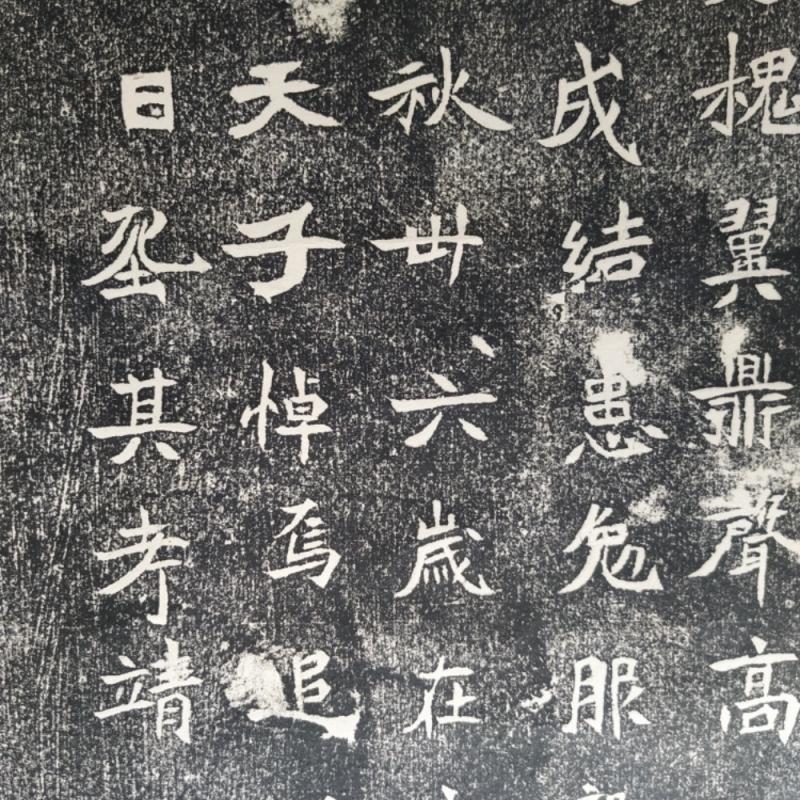 槐翼鼎聲高
成結患勉服
秋卌六歲在
天子悼焉追
曰其孝靖